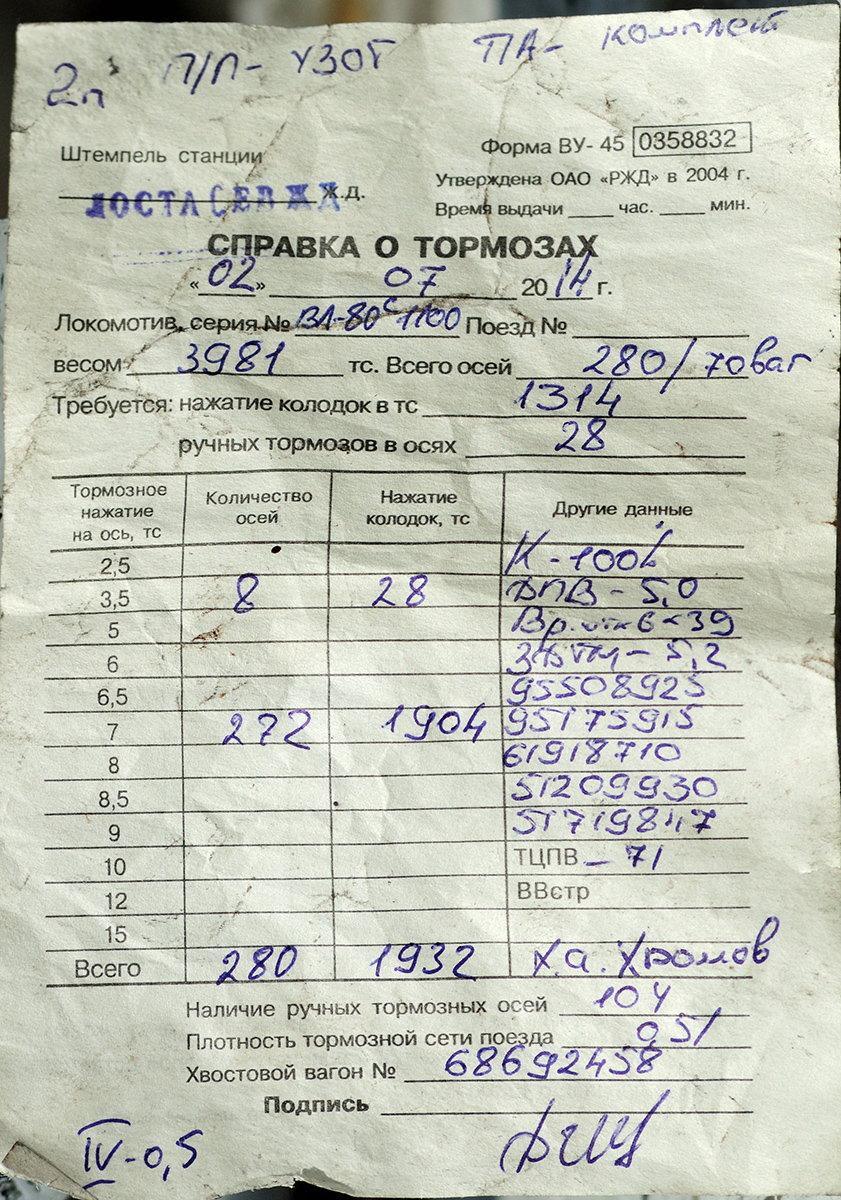 2п П/П- УЗОТ ПА- комплект
Форма ВУ- 45 0358832
Штемпель станции
Утверждена ОАО «РЖД» в 2004 г.
ЛОСТА СЕВ ЖД ж.д.
Время выдачи ____ час. ____ мин.
СПРАВКА О ТОРМОЗАХ
«02» 07 2014 г.
Локомотив, серия № ВЛ-80с 1100 Поезд №
весом 3981 тс. Всего осей 280/70ваг
Требуется: нажатие колодок в тс 1314
ручных тормозов в осях 28
Тормозное нажатие на ось, тс Количество осей Нажатие колодок, тс Другие данные
2,5 К-100%
3,5 8 28 ДПВ - 5,0
5 Вр. 6 39
6 - 5,2
6,5 95508925
7 272 1904 95175915
8 61918710
8,5 51209930
9 51719847
10 ТЦПВ - 71
12 ВВстр
15
Всего 280 1932 Х.а. Хромов
Наличие ручных тормозных осей 104
Плотность тормозной сети поезда 0,51
Хвостовой вагон № 68692458
Подпись
IV-0,5